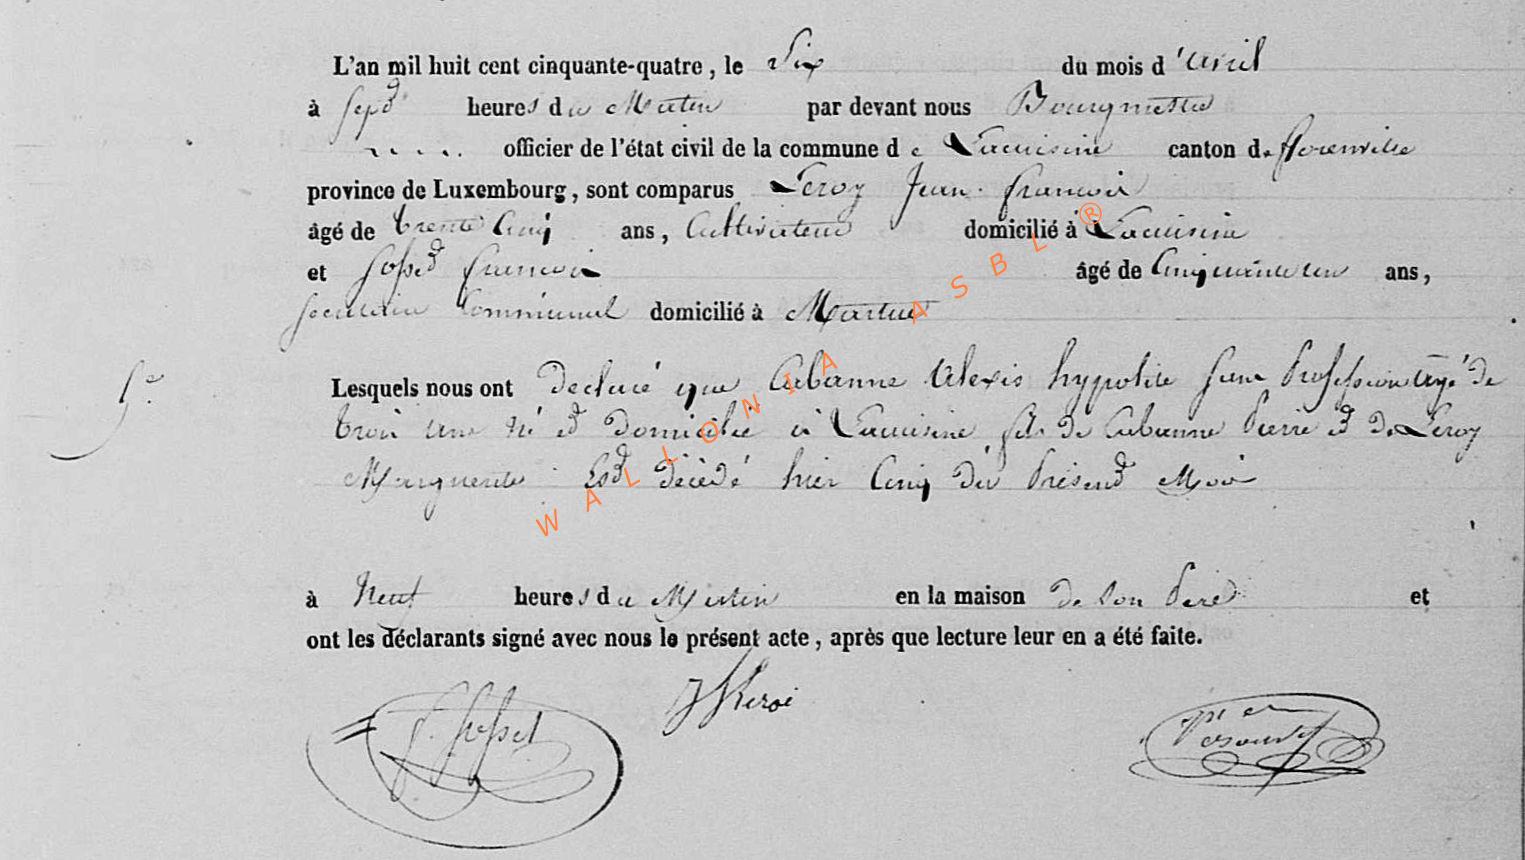 L'an mil huit cent cinquante-quatre, le Six du mois d'avril
à Sept heures du Matin par devant nous Bourgmestre
officier de l'état civil de la commune de Lacuisine canton de florenville
province de Luxembourg, sont comparus Leroy Jean francois
âgé de trente Cinq ans, Cultivateur domicilié à Lacuisine
et Gosset francois âgé de Cinquante un ans,
Secretaire Communal domicilié à Martué
5e Lesquels nous ont Déclaré que Arbanne Alexis hypolite Sans Profession agé de
trois ans né et Domicilié à Lacuisine fils de Pierre et De Leroy
Marguerite Est décédé hier Cinq du Présent Mois
à Neuf heures du Matin en la maison de Son Pere et
ont les déclarants signé avec nous le présent acte, après que lecture leur en a été faite.
f. Gosset JfLeroi
WALLONIA ASBL ®